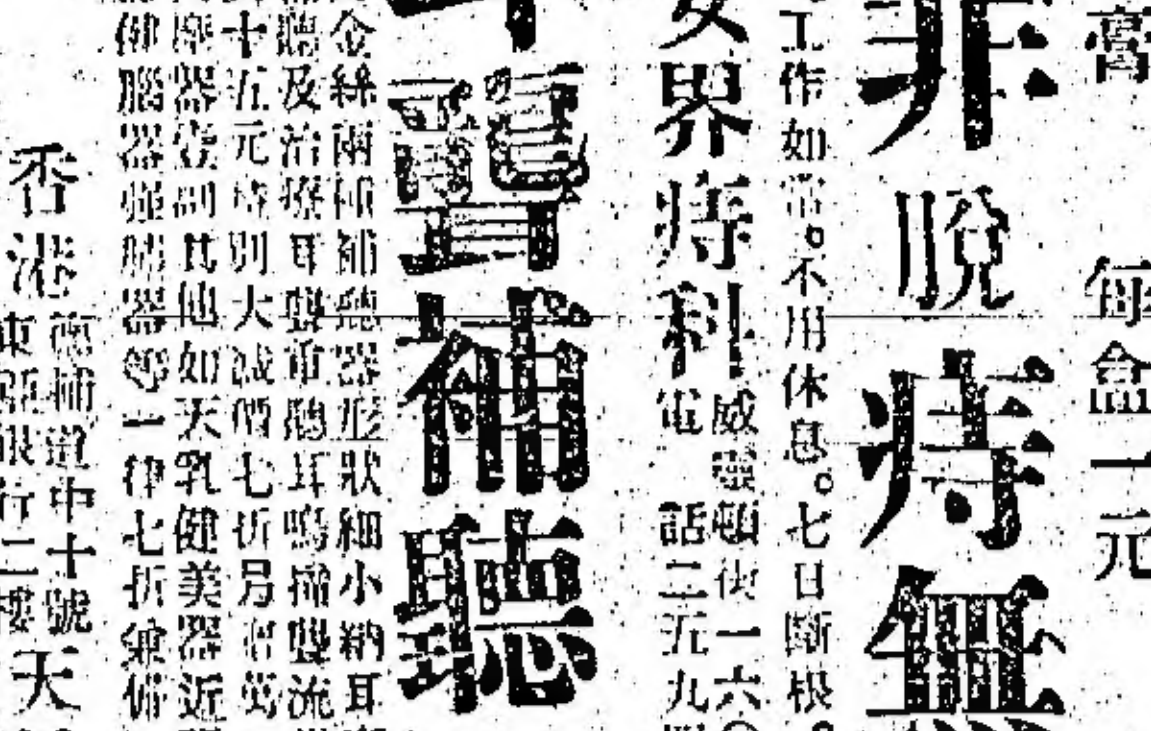 膏
每盒一元
非脫痔無
工作如常。不用休息。七日斷根。
女界痔科
威靈頓街一六〇
電話二五九
聾補聽
金絲兩補聽器形狀細小納耳
聽及治療耳聾重聽耳鳴 聾流
十五元 特別大減價七折另
摩器 其他如天乳健美器近
健腦器 器等一律七折兼備
香港
德輔道中十號
東 銀行二樓
天